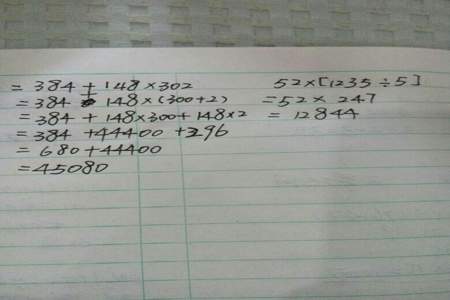 = 384 + 148 × 302
= 384 + 148 × (300+2)
= 384 + 148×300 + 148×2
= 384 + 44400 + 296
= 680 + 44400
= 45080
52×[1235÷5]
= 52 × 247
= 12844